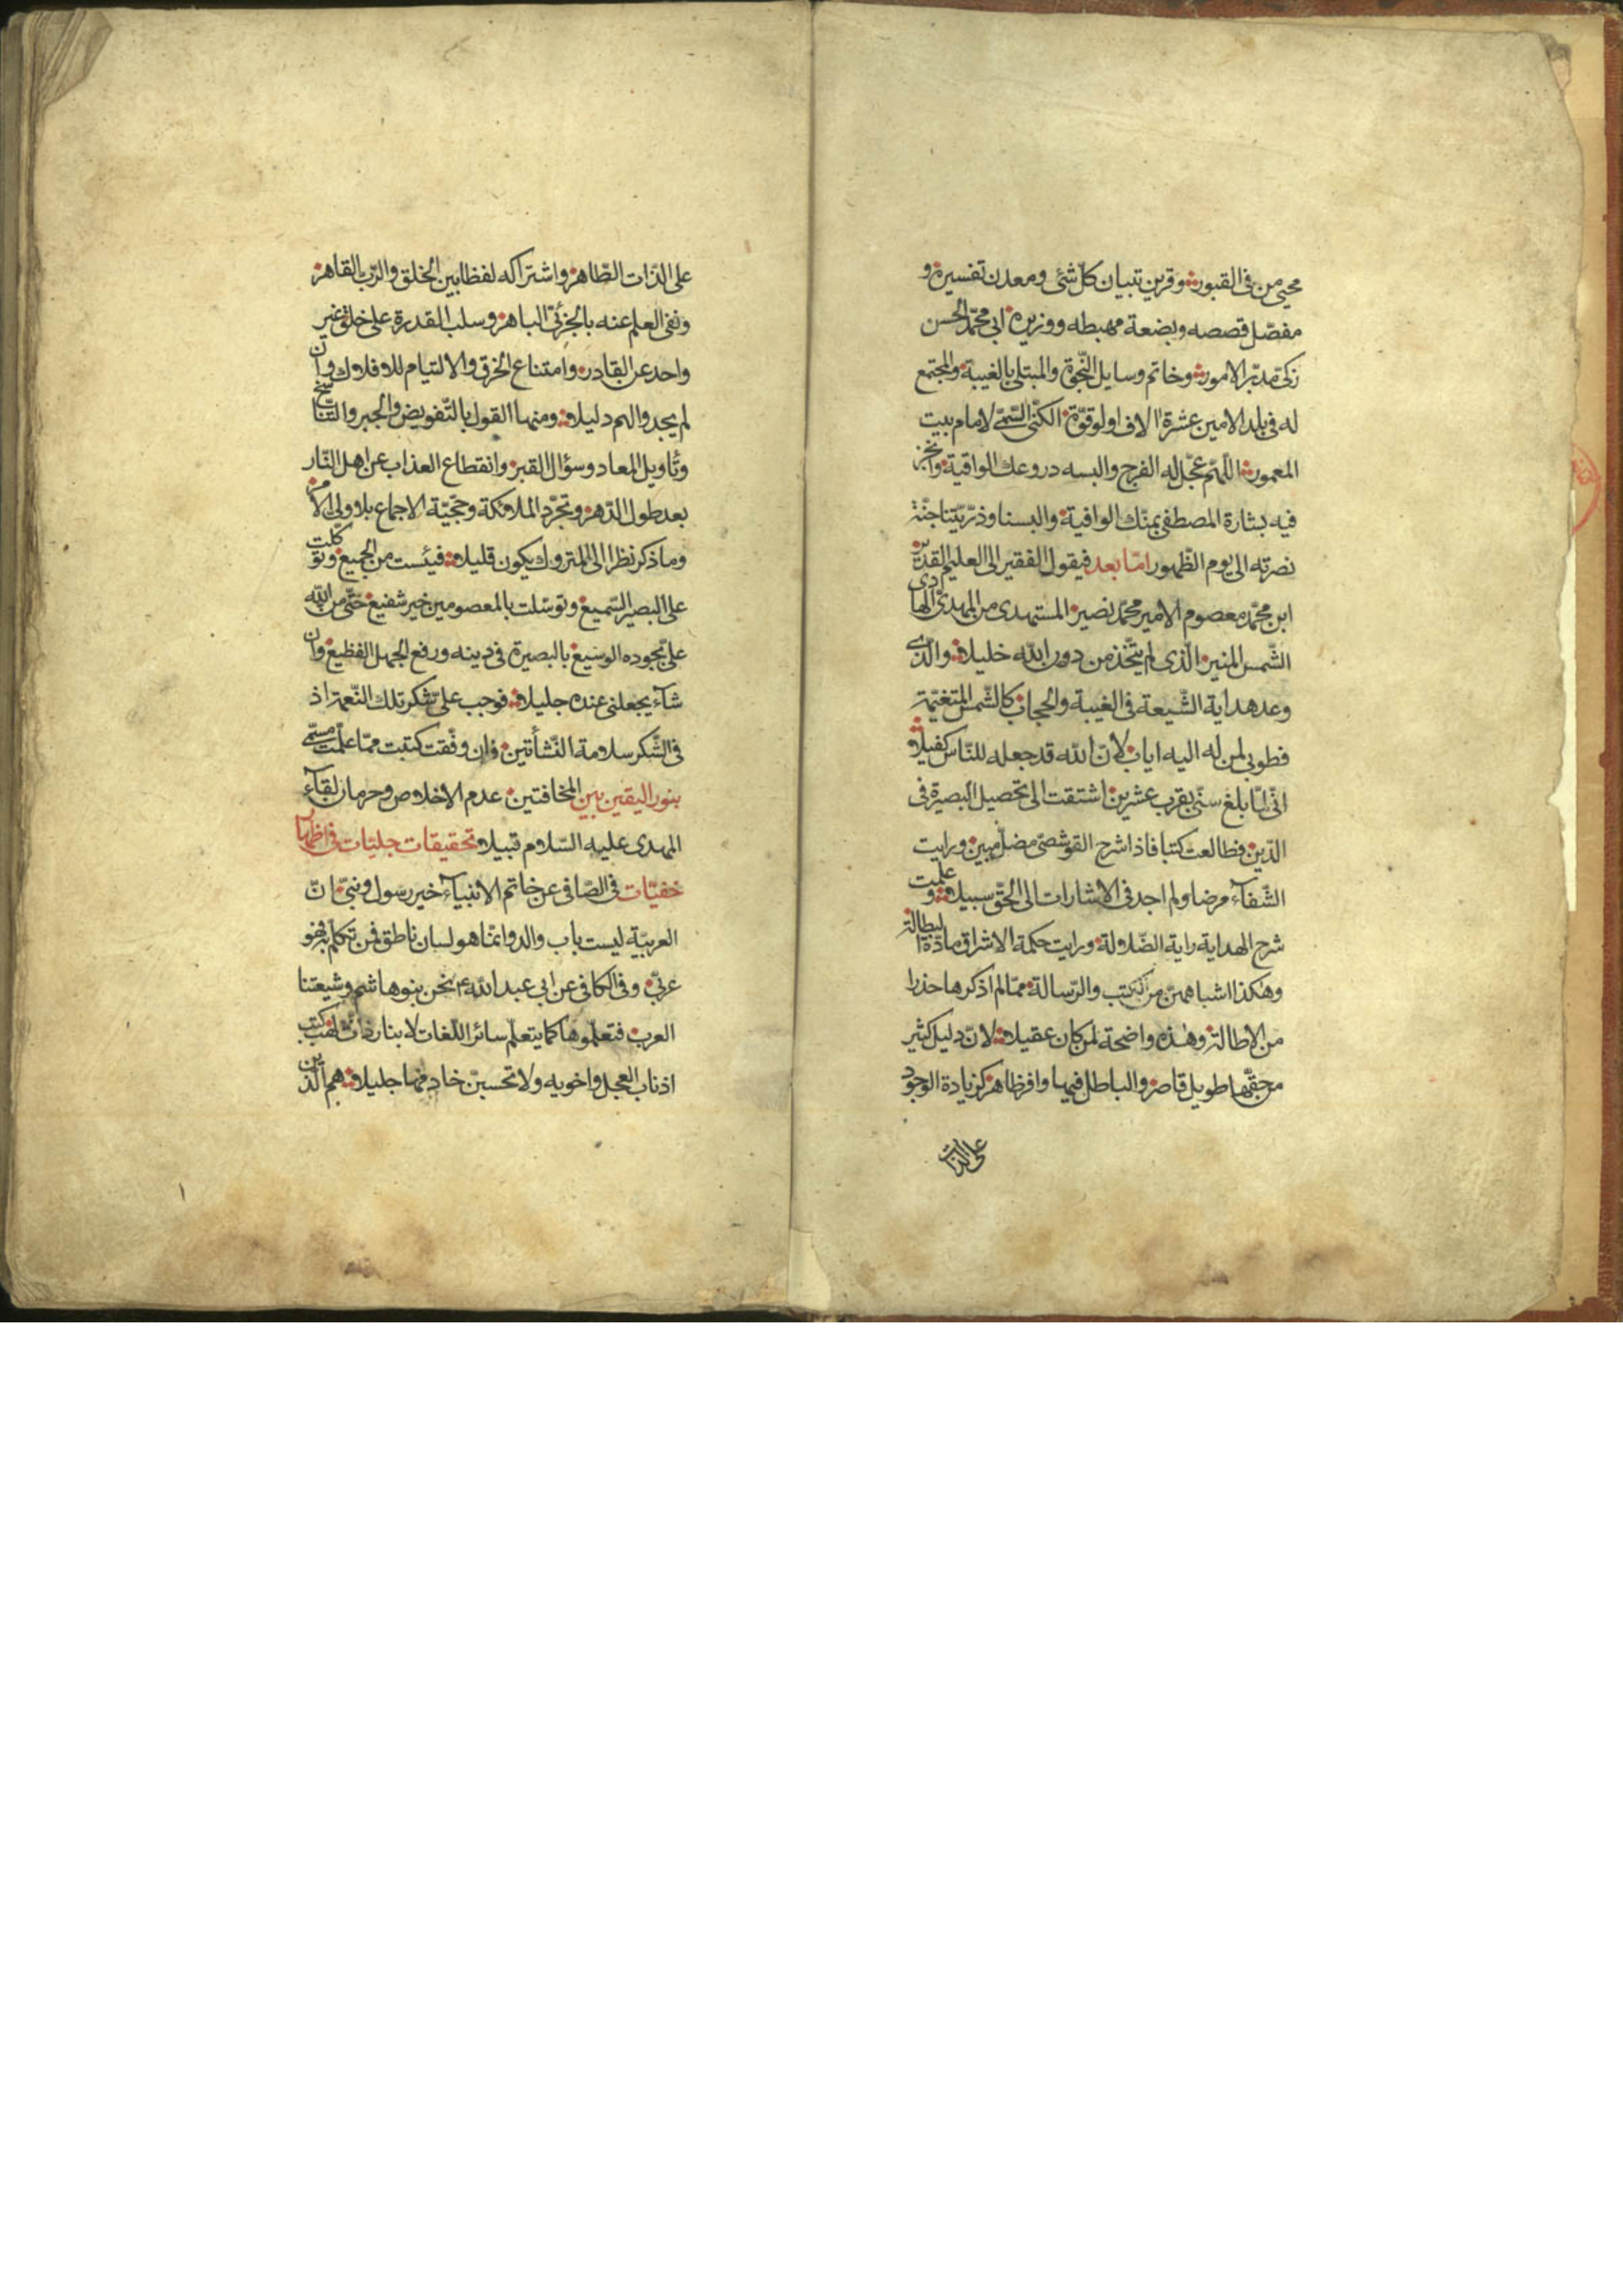 محيي من في القبور وقرين تبيان كلّ شئ ومعدن تفسيره و
مفصّل قصصه وبضعة مهبطه ووزيره ابي محمّد الحسن
زكيّ مدبّر الامور وخاتم وسايل النّجوة والمبتلى بالغيبة والمجتمع
له في بلد الامين عشرة الاف اولو قوّة الكنّى السّمّى لامام بيت
المعمور اللّهمّ عجّل له الفرج والبسه دروعك الواقية وانجز
فيه بشارة المصطفى بمنّك الوافية والبسنا وذرّيّتنا جنّة
نصرته الى يوم الظّهور امّا بعد فيقول الفقير الى العليم القدير
ابن محمّد معصوم الامير محمّد نصير المستهدى من المهدىّ الهادى
الشّمس المنير الّذى لم يتّخذ من دون الله خليلا والّذى
وعد هداية الشّيعة في الغيبة والحجاب كالشّمس المتغيّمة
فطوبى لمن له اليه اياب لانّ الله قد جعله للنّاس كفيلا
انّى لمّا بلغ سنّى بقرب عشرين اشتقت الى تحصيل البصيرة في
الدّين فطالعت كتبا فاذا شرح القوشچى مضلّ مبين ورايت
الشّفآء مرضا ولم اجد في الاشارات الى الحقّ سبيلا وعلمت
شرح الهداية راية الضّلالة ورايت حكمة الاشراق مادّة البطالة
وهكذا اشباههنّ من الكتب والرّسالة ممّا لم اذكرها حذرا
من الاطالة وهذه واضحة لمن كان عقيلا لانّ دليل كثير
من حقّها طويل قاصر والباطل فيها وافر ظاهر كزيادة الوجود
على الذات
على الذّات الظّاهر واشتراكه لفظا بين الخلق والرّبّ القاهر
ونفى العلم عنه بالجزئىّ الباهر وسلب القدرة على خلق غير
واحد عن القادر وامتناع الخرق والالتيام للافلاك وان
لم يجدوا لهم دليلا ومنها القول بالتّفويض والجبر والتناسخ
وتأويل المعاد وسؤال القبر وانقطاع العذاب عن اهل النّار
بعد طول الدّهر وتجرّد الملائكة وحجّيّة الاجماع بلا ولى الامر
وما ذكر نظرا الى المتروك يكون قليلا فيئست من الجميع وتوكّلت
على البصير السّميع وتوسّلت بالمعصومين خير شفيع حتّى من الله
علىّ بجوده الوسيع بالبصيرة في دينه ورفع الجهل الفظيع وان
شآء يجعلنى عنده جليلا فوجب علىّ شكر تلك النّعمة اذ
في الشّكر سلامة النّشأتين فان وفّقت كتبت ممّا علّمت مسمّى
بنور اليقين بين المخافتين عدم الاخلاص وحرمان لقآء
المهدى عليه السّلام قبيلا وتحقيقات جليّات في اظهار
خفيّات في الصّافى عن خاتم الانبيآء خير رسول ونبىّ انّ
العربيّة ليست باب والد وانّما هو لسان ناطق فمن تكلّم به فهو
عربىّ وفي الكافى عن ابى عبد الله ع نحن بنو هاشم وشيعتنا
العرب فتعلّموها كما يتعلّم سائر اللّغات لا بنار ذات لهب كتب
اذناب العجل واخويه ولا تحسبنّ خادمها جليلا هم الّذين
١